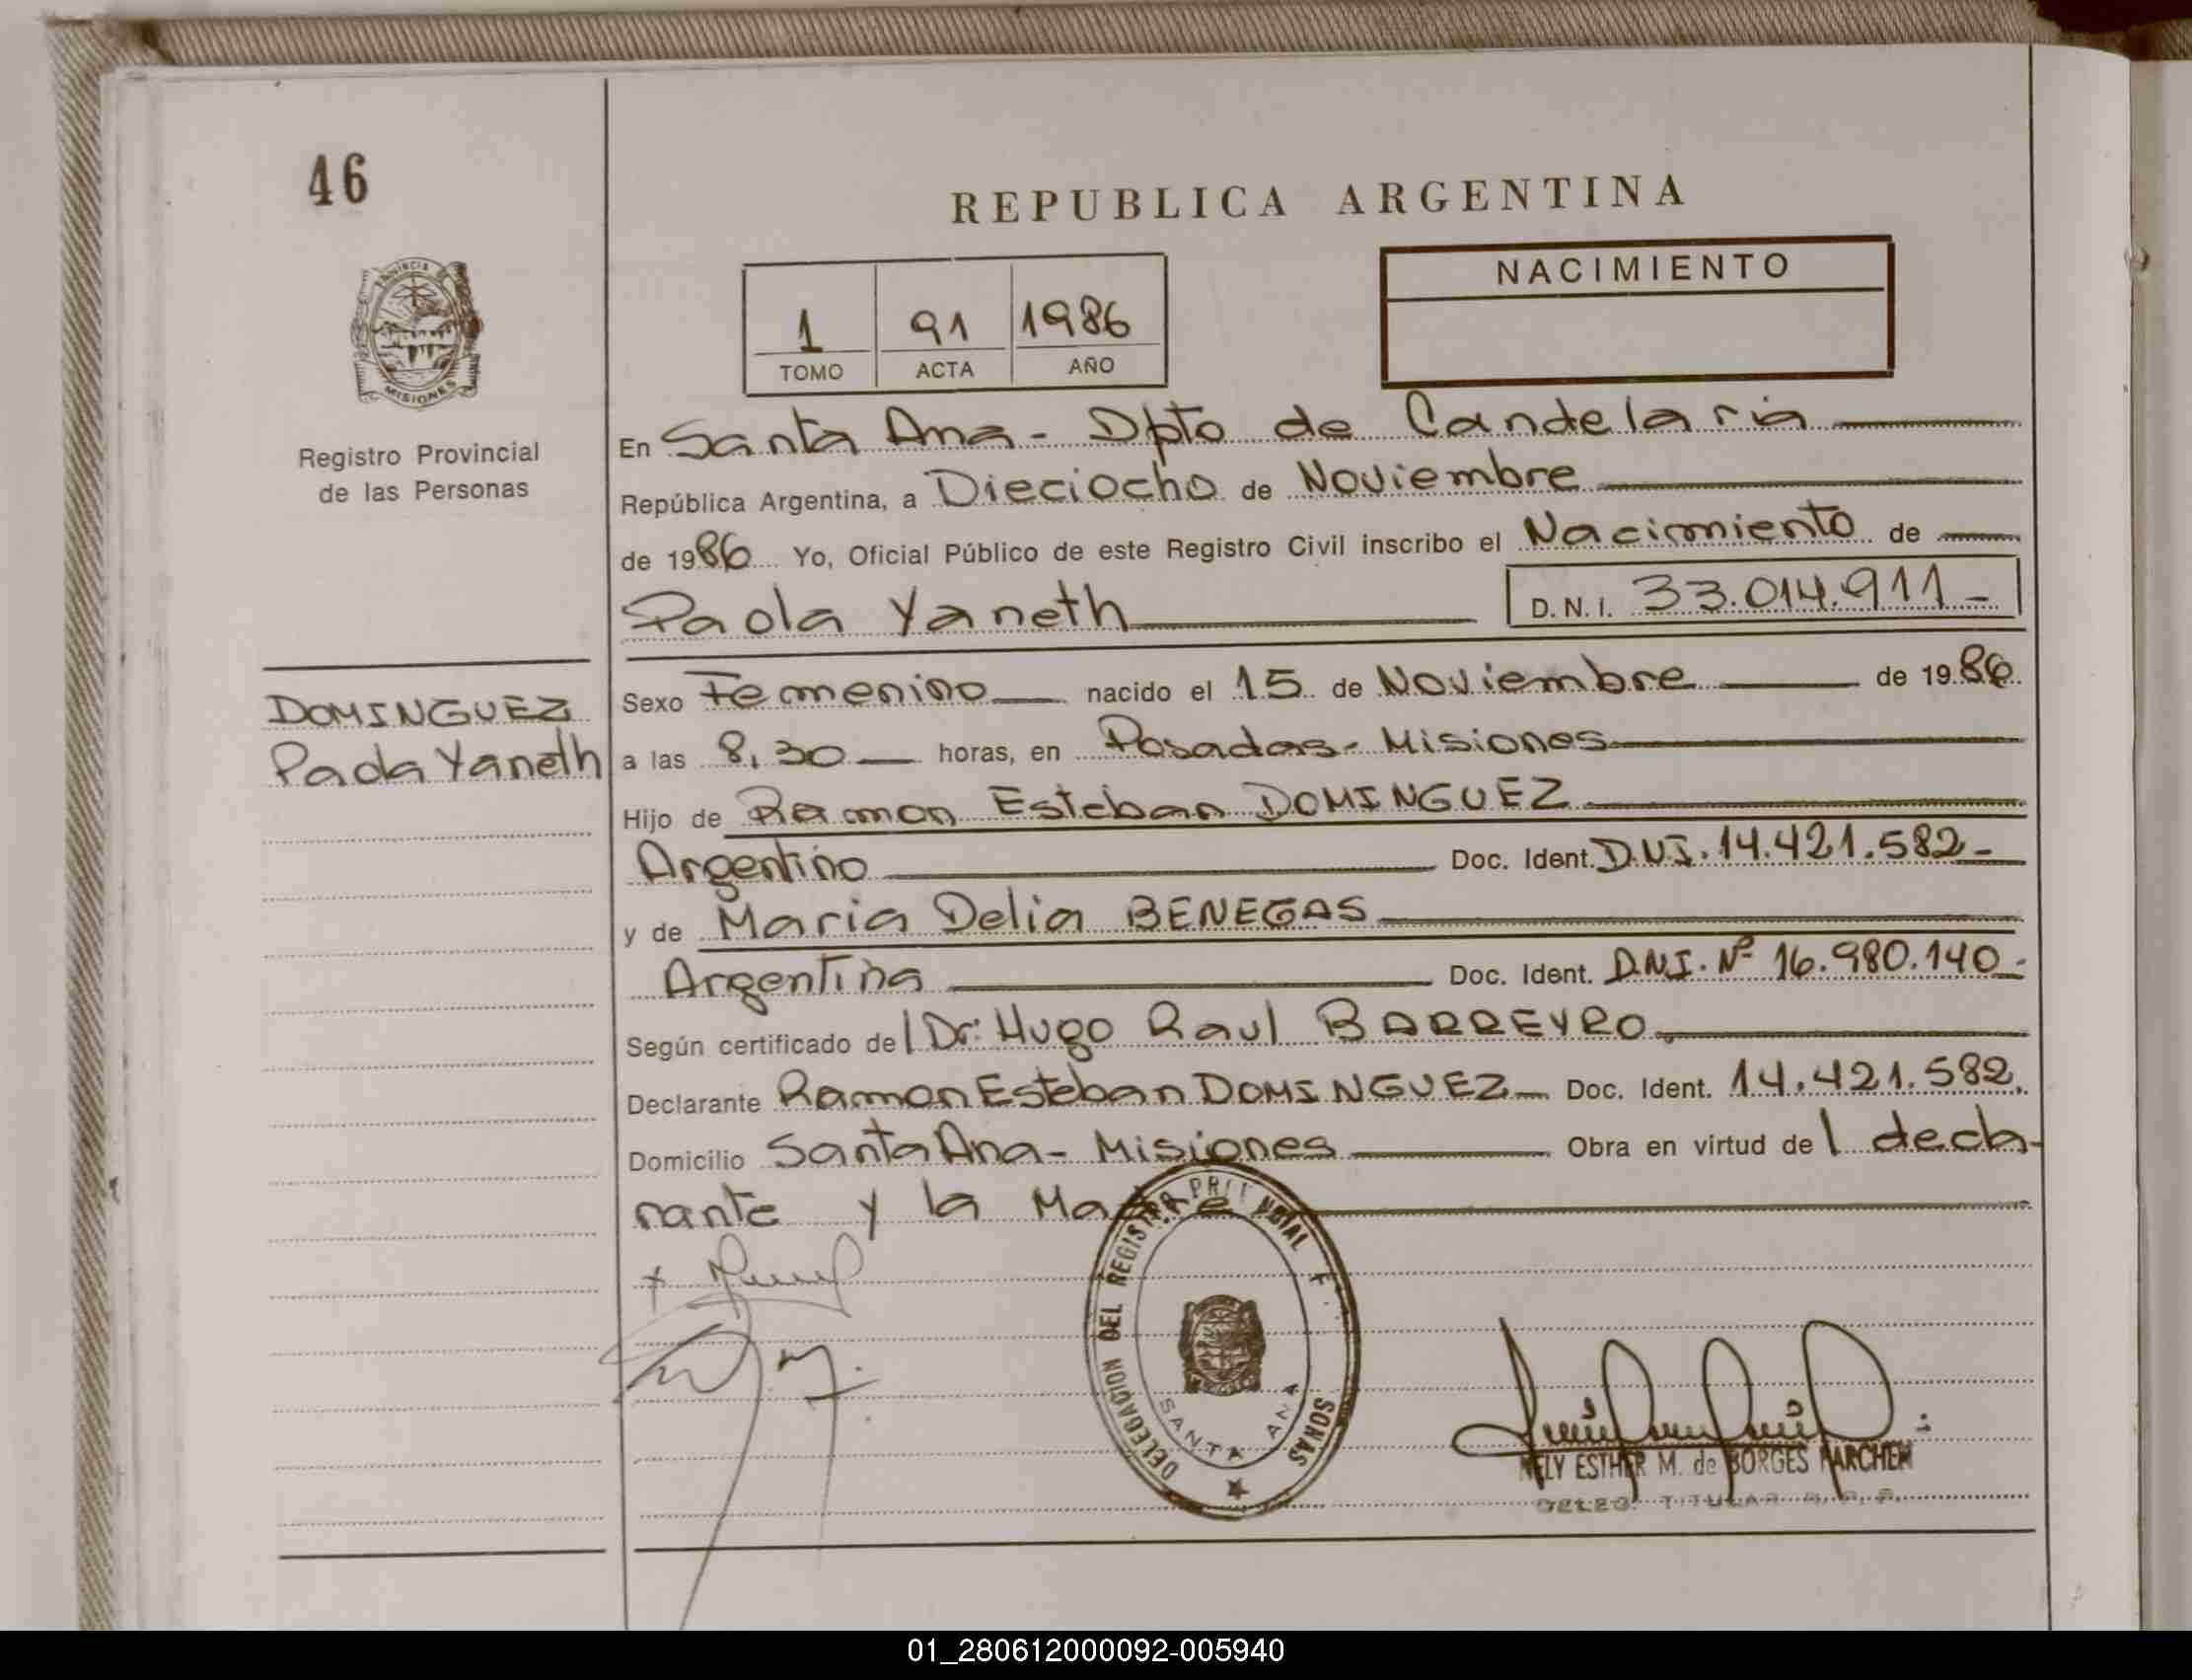 46
REPUBLICA ARGENTINA
PROVINCIA DE MISIONES
Registro Provincial
de las Personas
1 91 1986
TOMO ACTA AÑO
NACIMIENTO
En Santa Ana - Dpto de Candelaria
República Argentina, a Dieciocho de Noviembre
de 1986 Yo, Oficial Público de este Registro Civil inscribo el Nacimiento de
Paola Yaneth D.N.I. 33.014.911-
DOMINGUEZ
Paola Yaneth
Sexo Femenino nacido el 15 de Noviembre de 1986
a las 8,30 horas, en Posadas - Misiones
Hijo de Ramon Esteban DOMINGUEZ
Argentino Doc. Ident. D.N.I. 14.421.582-
y de Maria Delia BENEGAS
Argentina Doc. Ident. D.N.I. Nº 16.980.140-
Según certificado de l Dr. Hugo Raul BARREYRO
Declarante Ramon Esteban DOMINGUEZ - Doc. Ident. 14.421.582.
Domicilio Santa Ana - Misiones Obra en virtud de l decla-
rante y la Madre
DELEGACION DEL REGISTRO
SANTA ANA
NELY ESTHER M. de BORGES PARCHEM
DELEG. TITULAR R. P. P.
01_280612000092-005940